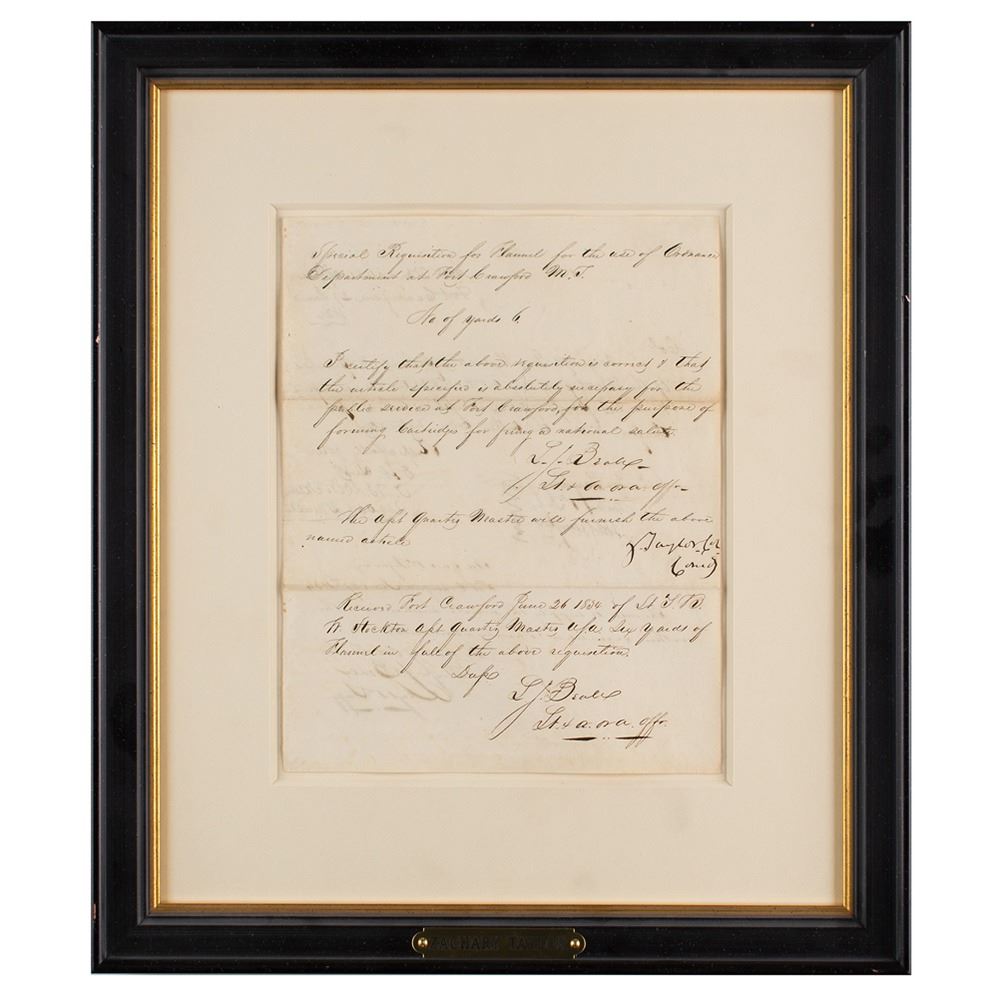 Special Requisition for Flannel for the use of Ordnance
Department at Fort Crawford M.T.
No of yards 6
I certify that the above requisition is correct & that
the article specified is absolutely necessary for the
public service at Fort Crawford, for the purpose of
forming Cartridges for firing a national salute.
L. J. Beale
Lt. & a. ord. offr.
The Asst Quarter Master will furnish the above
named article
Z. Taylor Col
Comdg
Received Fort Crawford June 26 1834 of Lt T. B.
W Stockton Asst Quarter Master U.S.A. Six yards of
Flannel in full of the above requisition.
Dups
L J Beale
Lt. & a. ord. offr.
ZACHARY TAYLOR